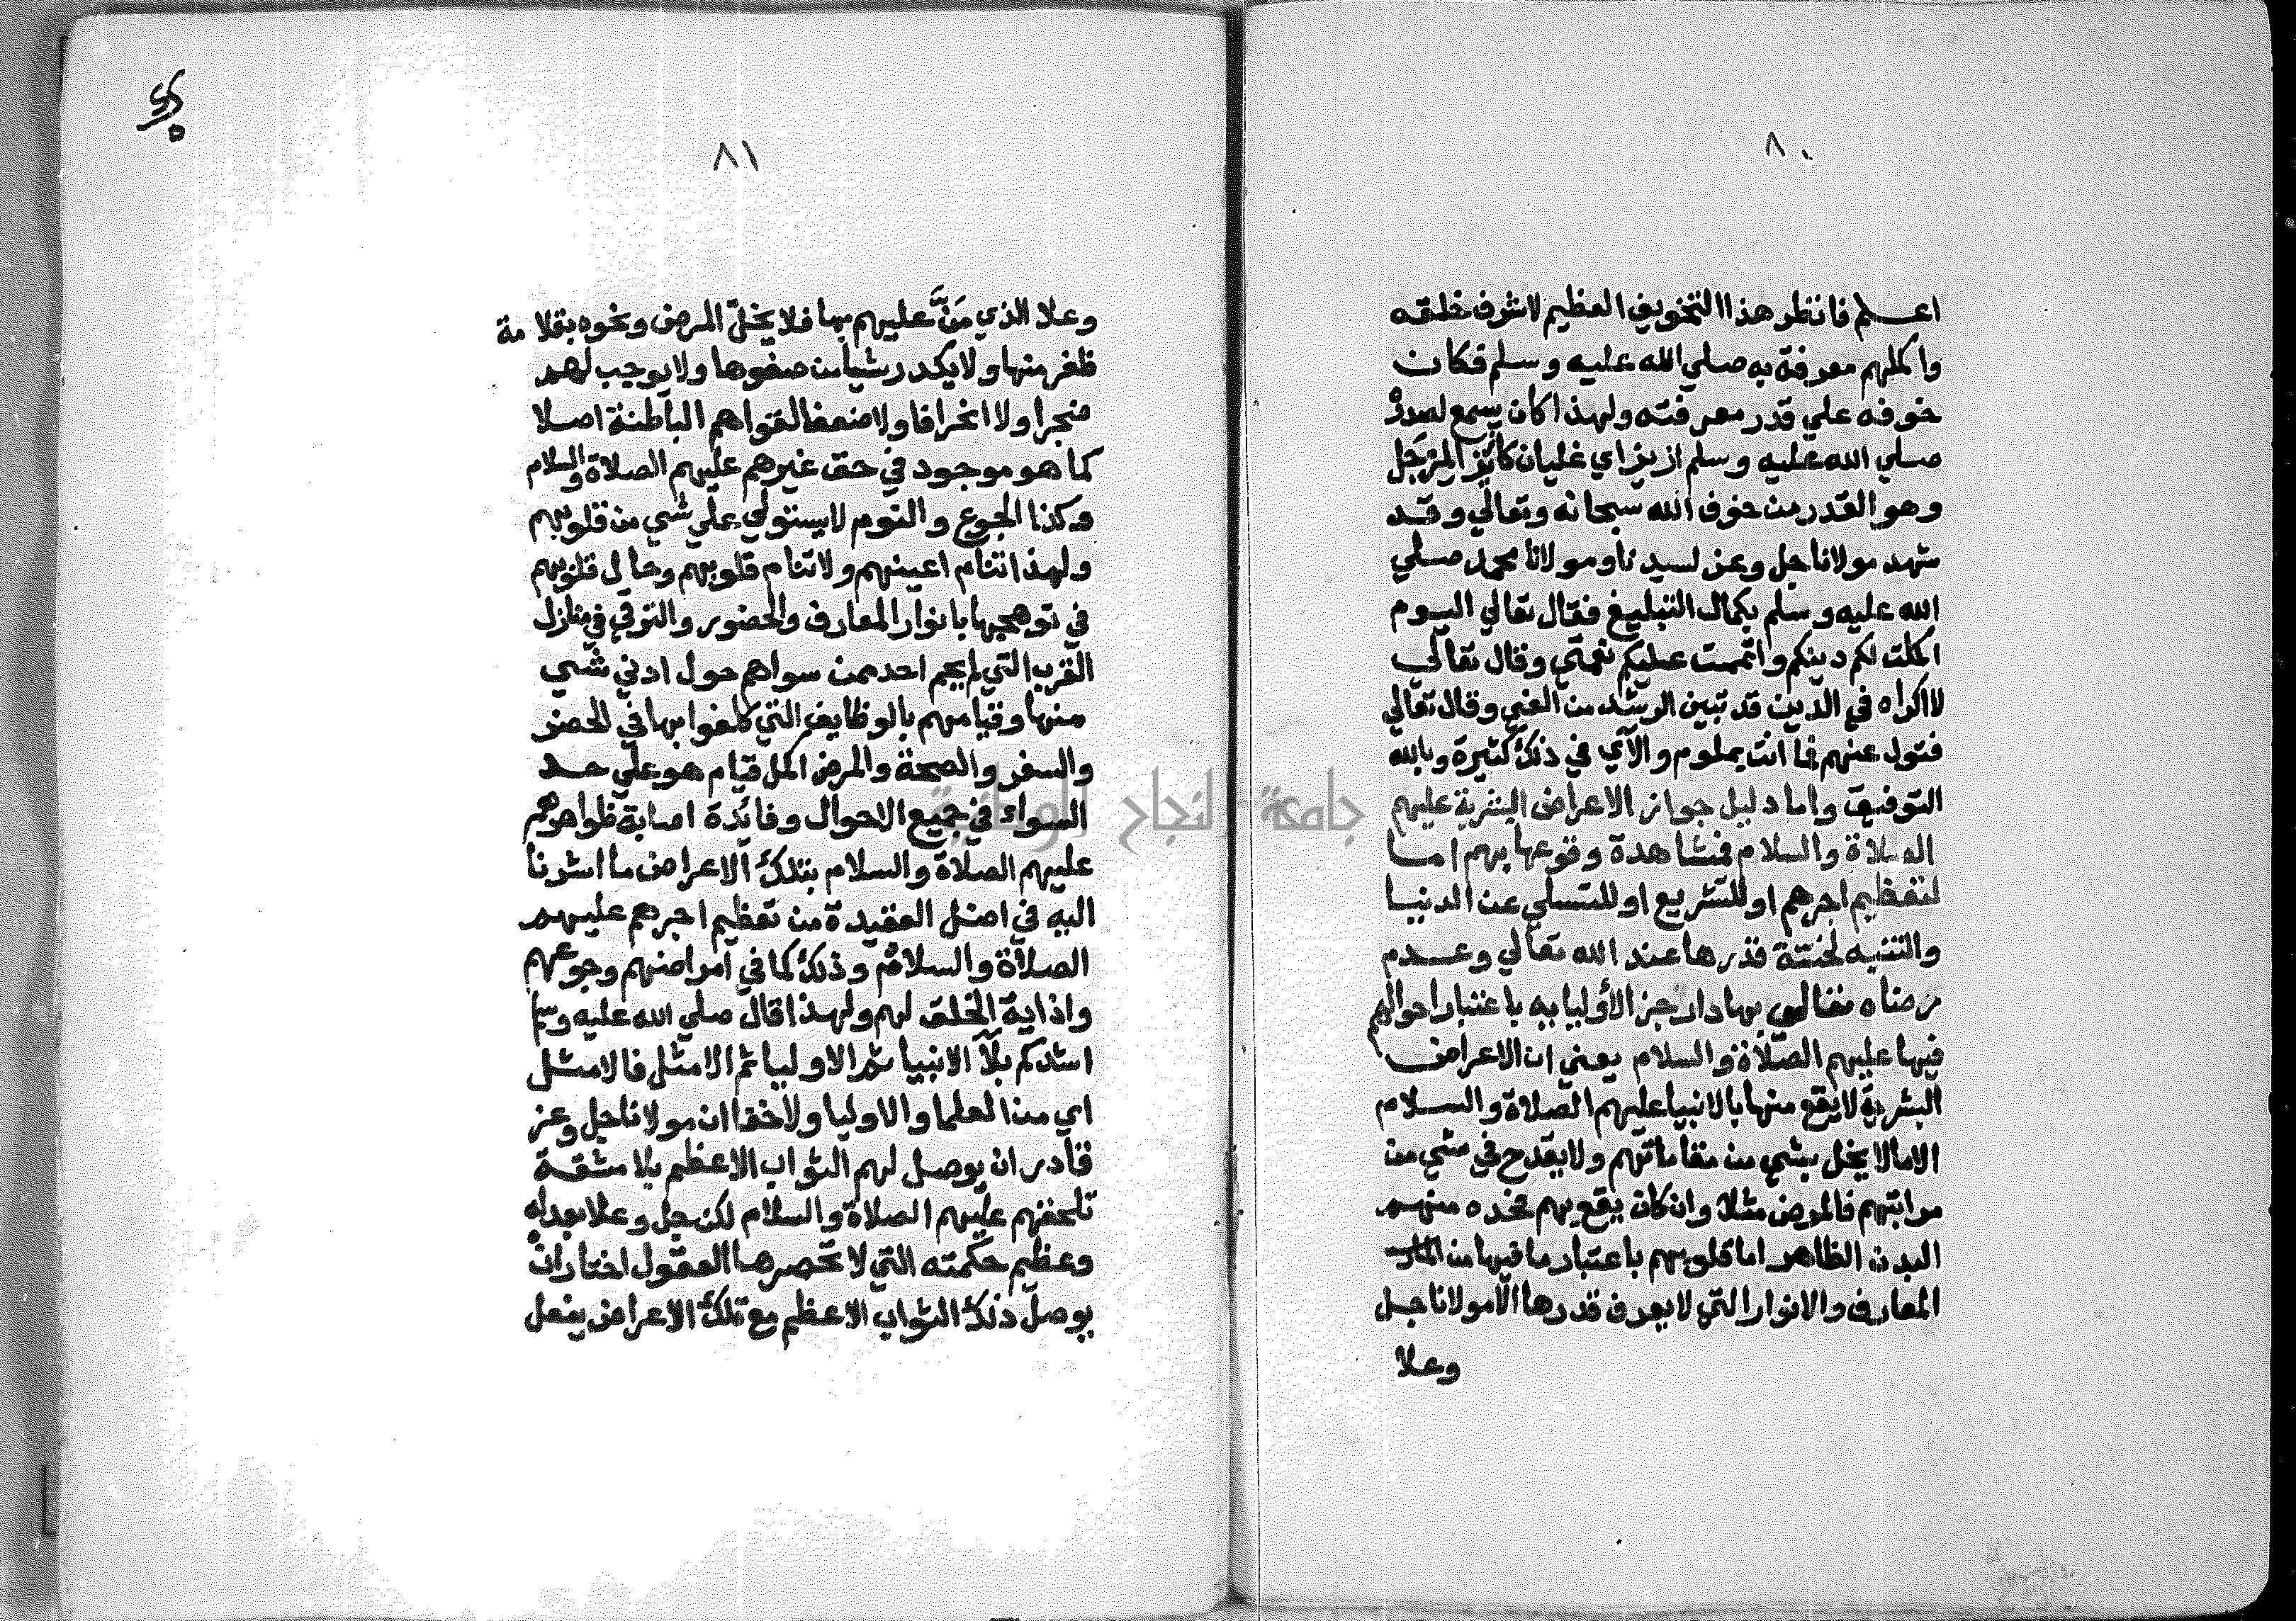 ٨٠
اعلم فانظر هذا التخويف العظيم لاشرف خلقه
واكملهم معرفة به صلي الله عليه وسلم فكان
خوفه علي قدر معرفته ولهذا كان يسمع لصدره
صلي الله عليه وسلم ازيز اي غليان كازيز المرجل
وهو القدر من خوف الله سبحانه وتعالي وقد
شهد مولانا جل وعز لسيدنا ومولانا محمد صلي
الله عليه وسلم بكمال التبليغ فقال تعالي اليوم
اكملت لكم دينكم واتممت عليكم نعمتي وقال تعالي
لا اكراه في الدين قد تبين الرشد من الغي وقال تعالي
فتول عنهم فما انت بملوم والآي في ذلك كثيرة وبالله
التوفيق واما دليل جواز الاعراض البشرية عليهم
الصلاة والسلام فمشاهدة وقوعها بهم اما
لتعظيم اجرهم او للتشريع او للتسلي عن الدنيا
والتنبيه لخسة قدرها عند الله تعالي وعدم
رضاه تعالي بها دار جزا لاوليايه باعتبار احوالهم
فيها عليهم الصلاة والسلام يعني ان الاعراض
البشرية لا يقع منها بالانبيا عليهم الصلاة والسلام
الا ما لا يخل بشي من مقاماتهم ولا يقدح في شي من
مراتبهم فالمرض مثلا وان كان يقع بهم فحده منهم
البدن الظاهر اما قلوبهم باعتبار ما فيها من
المعارف والانوار التي لا يعرف قدرها الا مولانا جل
وعلا
٨١
وعلا الذي مَنَّ عليهم بها فلا يخل المرض ونحوه بقلامة
ظفر منها ولا يكدر شيا من صفوها ولا يوجب لهم
ضجرا ولا انحرافا ولا ضعفا لقواهم الباطنة اصلا
كما هو موجود في حق غيرهم عليهم الصلاة والسلام
وكذا الجوع والنوم لا يستولي علي شي من قلوبهم
ولهذا تنام اعينهم ولا تنام قلوبهم وحال قلوبهم
في توهجها بانوار المعارف والحضور والترقي في منازل
القرب التي لم يحم احد ممن سواهم حول ادني شي
منها وقيامهم بالوظايف التي كلفوا بها في الحضر
والسفر والصحة والمرض اكمل قيام هو علي حد
السواء في جميع الاحوال وفائدة اصابة ظواهرهم
عليهم الصلاة والسلام بتلك الاعراض ما اشرنا
اليه في اصل العقيدة من تعظيم اجرهم عليهم
الصلاة والسلام وذلك كما في امراضهم وجوعهم
واذاية الخلق لهم ولهذا قال صلي الله عليه وسلم
اشدكم بلآ الانبيا ثم الاوليا ثم الامثل فالامثل
اي من العلما والاوليا ولا خفا ان مولانا جل وعز
قادر ان يوصل لهم الثواب الاعظم بلا مشقة
تلحقهم عليهم الصلاة والسلام لكن جل وعلا بعدله
وعظيم حكمته التي لا تحصرها العقول اختار ان
يوصل ذلك الثواب الاعظم مع تلك الاعراض يفعل
جامعة النجاح الوطنية